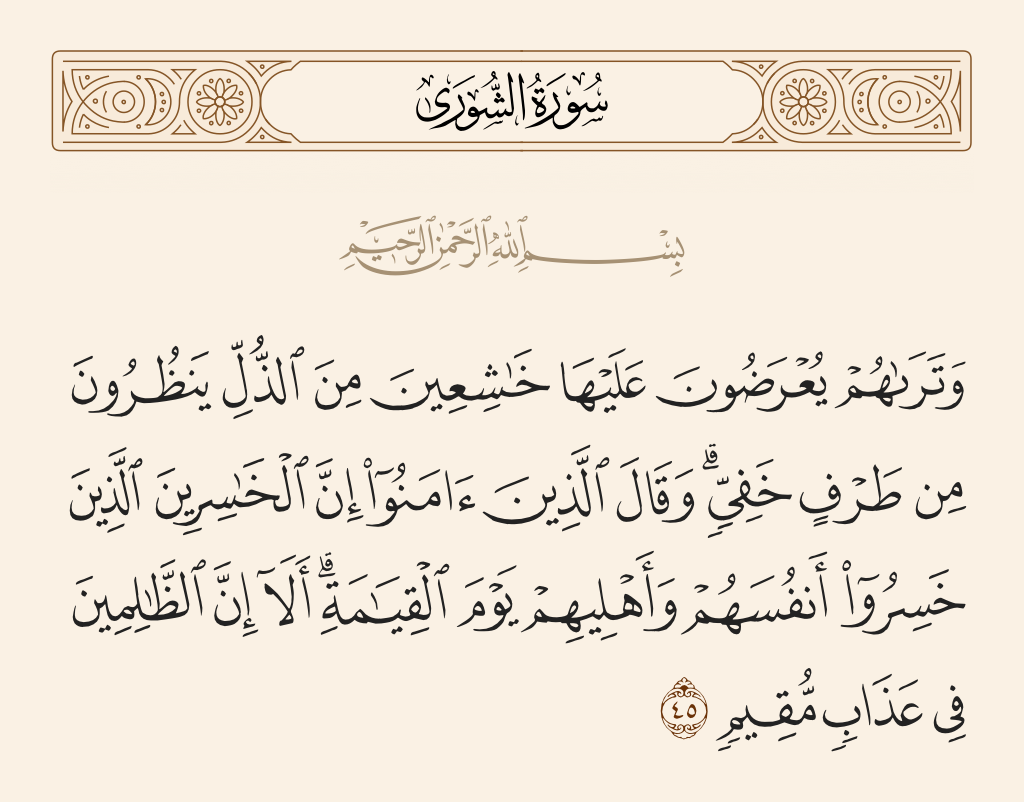 سُورَةُ الشُّورَىٰ
بِسْمِ ٱللَّهِ ٱلرَّحْمَٰنِ ٱلرَّحِيمِ
وَتَرَىٰهُمْ يُعْرَضُونَ عَلَيْهَا خَٰشِعِينَ مِنَ ٱلذُّلِّ يَنظُرُونَ
مِن طَرْفٍ خَفِىٍّ ۗ وَقَالَ ٱلَّذِينَ ءَامَنُوٓا۟ إِنَّ ٱلْخَٰسِرِينَ ٱلَّذِينَ
خَسِرُوٓا۟ أَنفُسَهُمْ وَأَهْلِيهِمْ يَوْمَ ٱلْقِيَٰمَةِ ۗ أَلَآ إِنَّ ٱلظَّٰلِمِينَ
فِى عَذَابٍ مُّقِيمٍ ٤٥